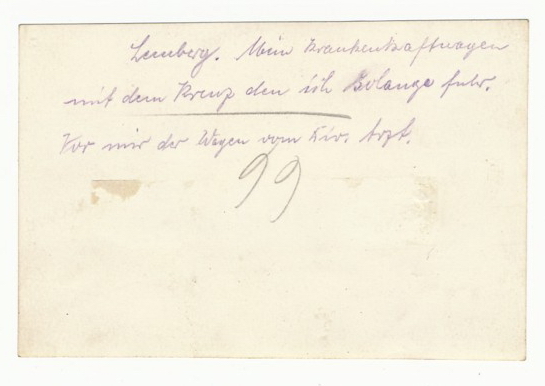 Lemberg. Mein Krankenkraftwagen
mit dem Kreuz den ich solange fuhr.
Vor mir der Wagen vom Div. Arzt.
99